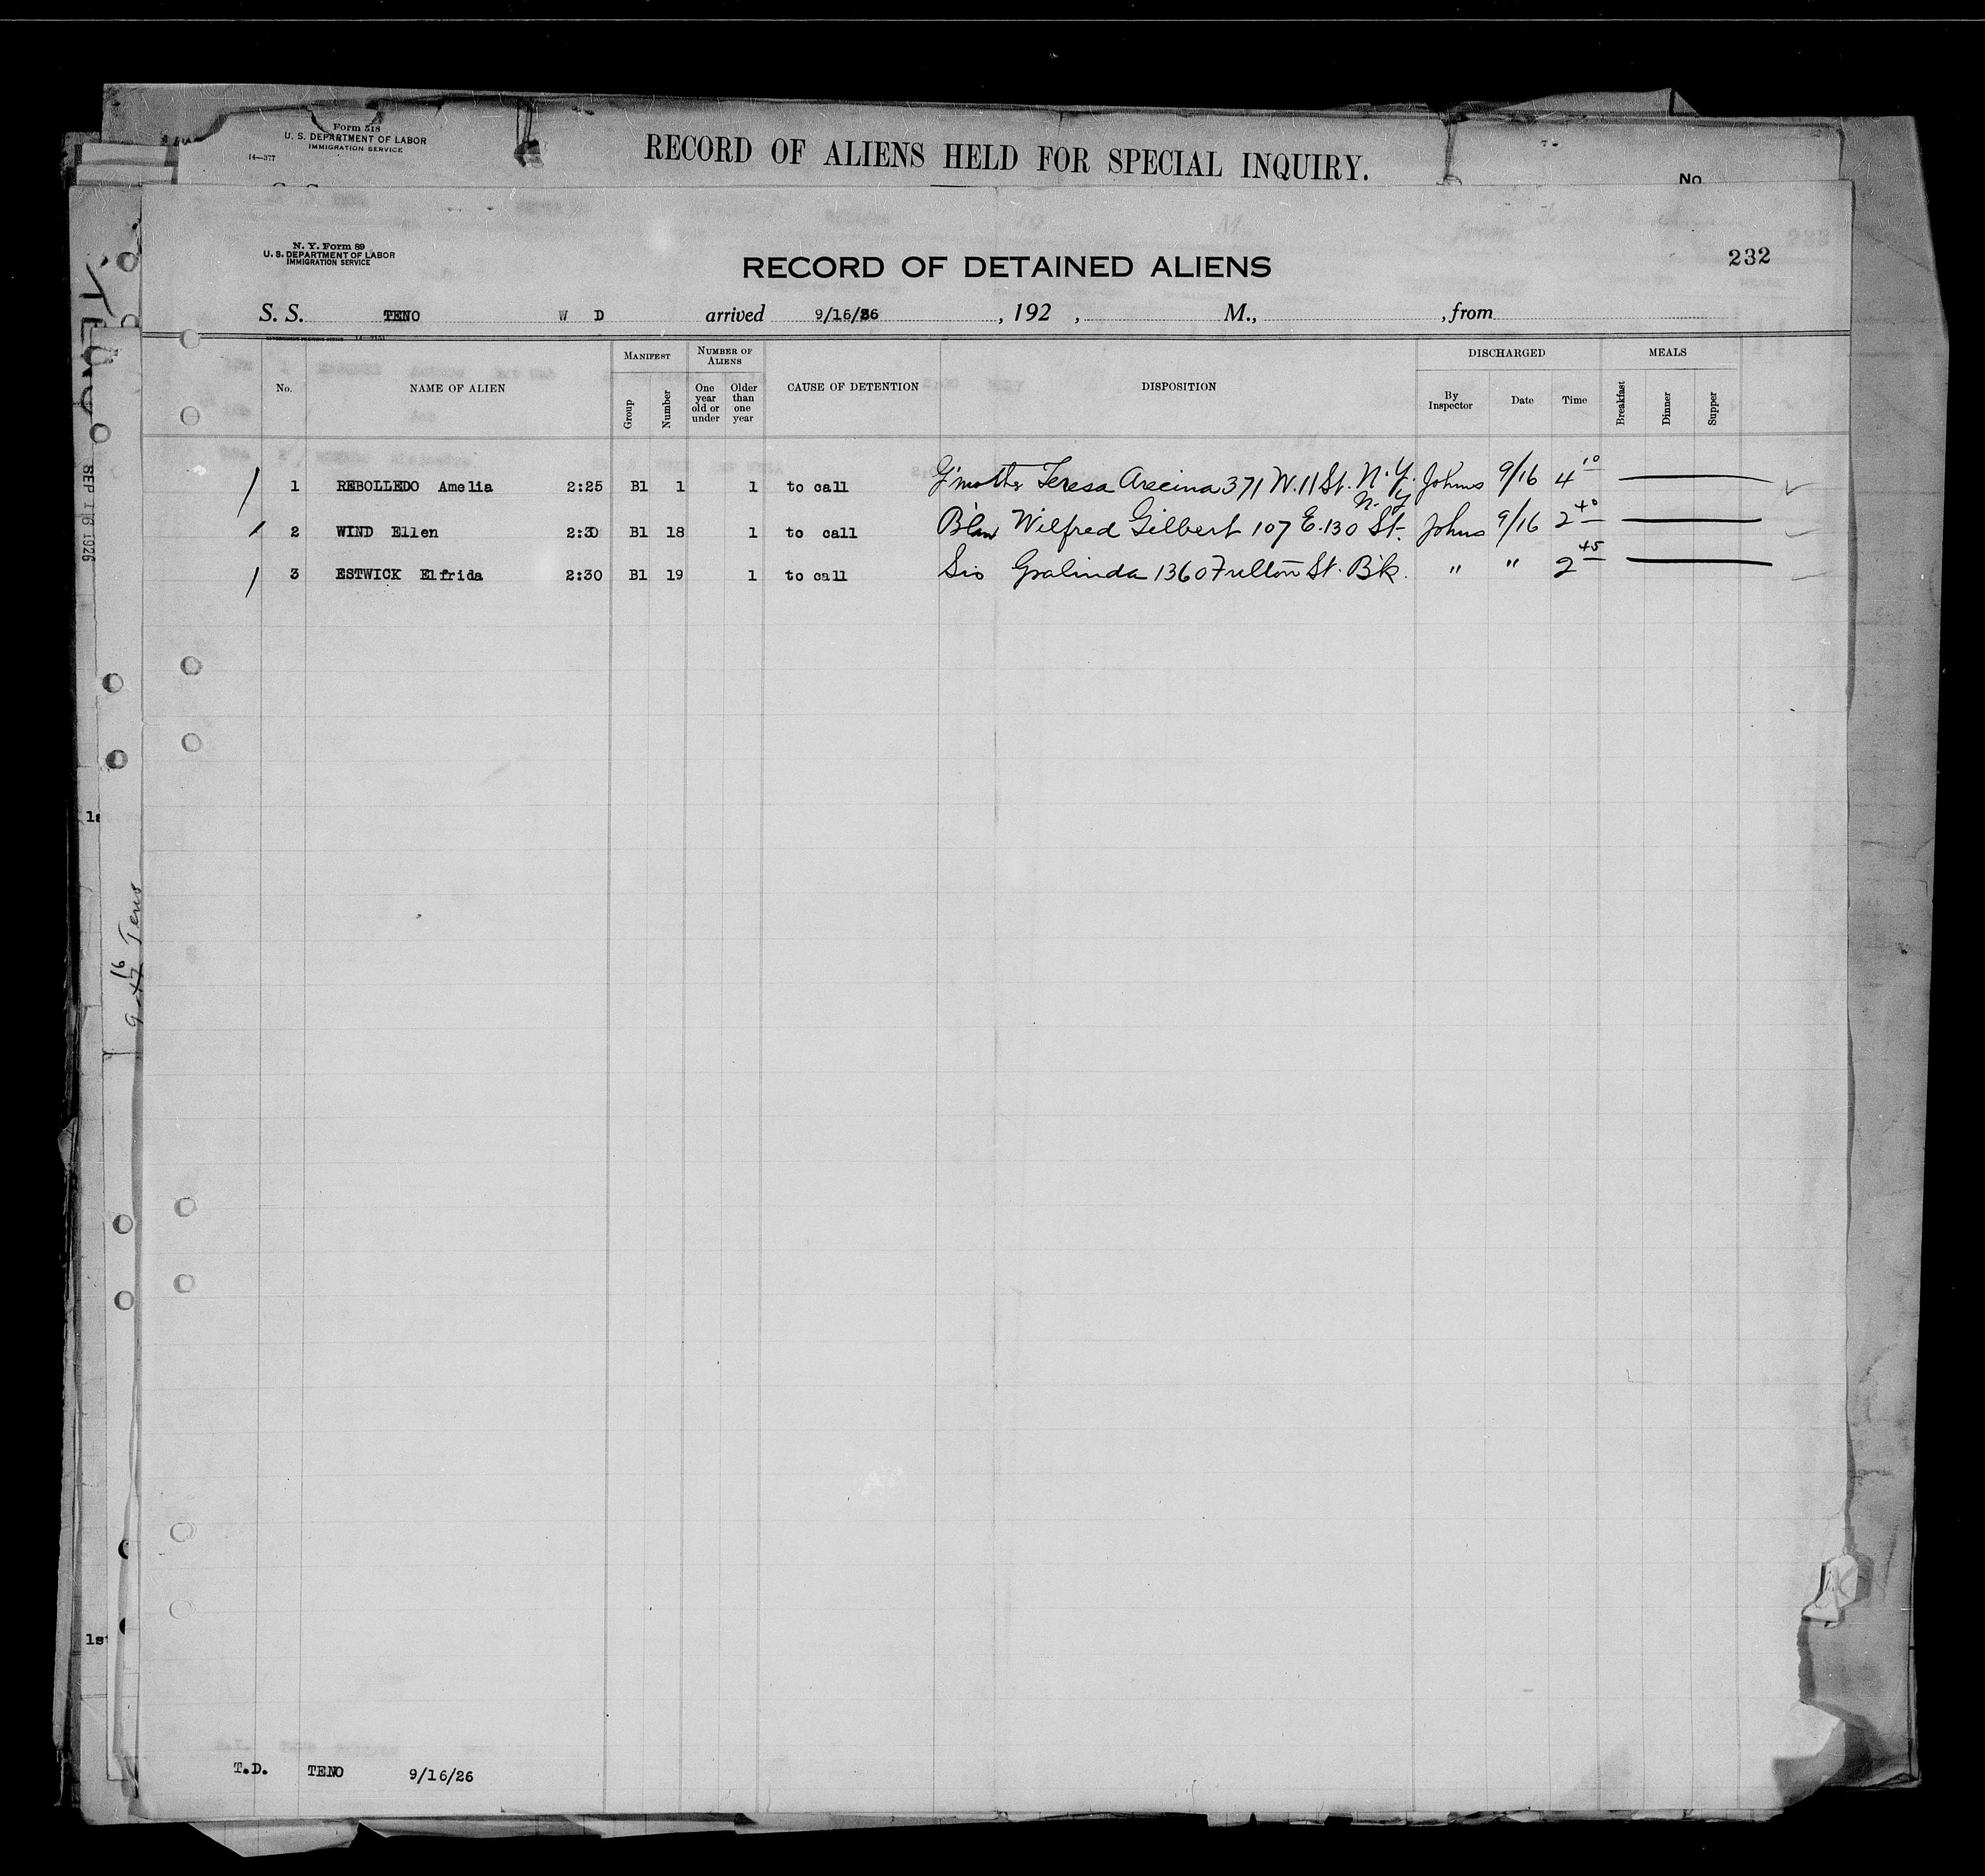 Form 518
U. S. DEPARTMENT OF LABOR
IMMIGRATION SERVICE
14—377
RECORD OF ALIENS HELD FOR SPECIAL INQUIRY.
No.
N. Y. Form 89
U. S. DEPARTMENT OF LABOR
IMMIGRATION SERVICE
RECORD OF DETAINED ALIENS
232
S. S. TENO W D arrived 9/16/26 , 192 , M., , from
No. NAME OF ALIEN MANIFEST Group Number NUMBER OF ALIENS One year old or under Older than one year CAUSE OF DETENTION DISPOSITION DISCHARGED By Inspector Date Time MEALS Breakfast Dinner Supper
1 REBOLLEDO Amelia 2:25 Bl 1 1 to call G'mother Teresa 371 W. 11 St. N.Y. Johns 9/16 4 10
2 WIND Ellen 2:30 Bl 18 1 to call B'law Wilfred Gilbert 107 E. 130 St. N.Y Johns 9/16 2 40
3 ESTWICK Elfrida 2:30 Bl 19 1 to call Sis 1360 Fulton St. B'k. " " 2 45
T.D. TENO 9/16/26
TENO
SEP 16 1926
16 Teno